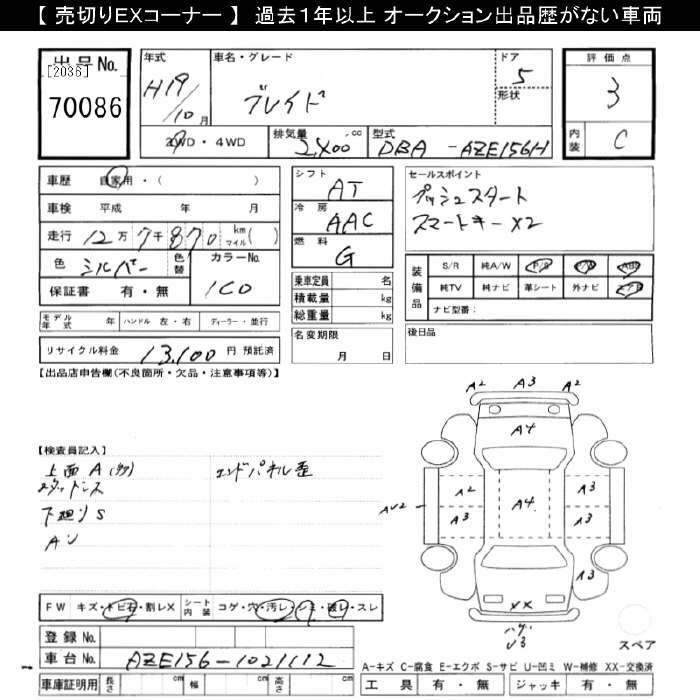 【 売切りEXコーナー 】 過去1年以上 オークション出品歴がない車両
出品No.
[2036]
70086
年式
H19/10月
車名・グレード
ブレイド
ドア
5
形状
評価点
3
内装
C
2WD・4WD
排気量
2400 cc
型式
DBA -AZE156H
車歴 自家用・( )
車検 平成 年 月
走行 12万7千870 km マイル( )
色 シルバー 色替
カラーNo.
1C0
保証書 有・無
シフト
AT
冷房
AAC
燃料
G
乗車定員 名
積載量 kg
総重量 kg
セールスポイント
プッシュスタート
スマートキーX2
装備品
S/R 純A/W P/S P/W ABS
純TV 純ナビ 革シート 外ナビ エアB
ナビ型番:
モデル年式 年 ハンドル 左・右 ディーラー・並行
リサイクル料金 13,100 円 預託済
名変期限
月 日
後日品
【出品店申告欄(不良箇所・欠品・注意事項等)】
【検査員記入】
上面A(多)
エンドパネル歪
下廻りS
AU
A2 A3 A2
A4
A2 A4 A3
AU2
A3 A3
A3
XX
U3
スペア
FW キズ・トビ石・割レX
シート内装 コゲ・穴・汚レ・シミ・破レ・スレ
登録No.
車台No. AZE156-1021112
車庫証明用 長さ cm 幅 cm 高さ cm
A-キズ C-腐食 E-エクボ S-サビ U-凹ミ W-補修 XX-交換済
工具 有・無 ジャッキ 有・無